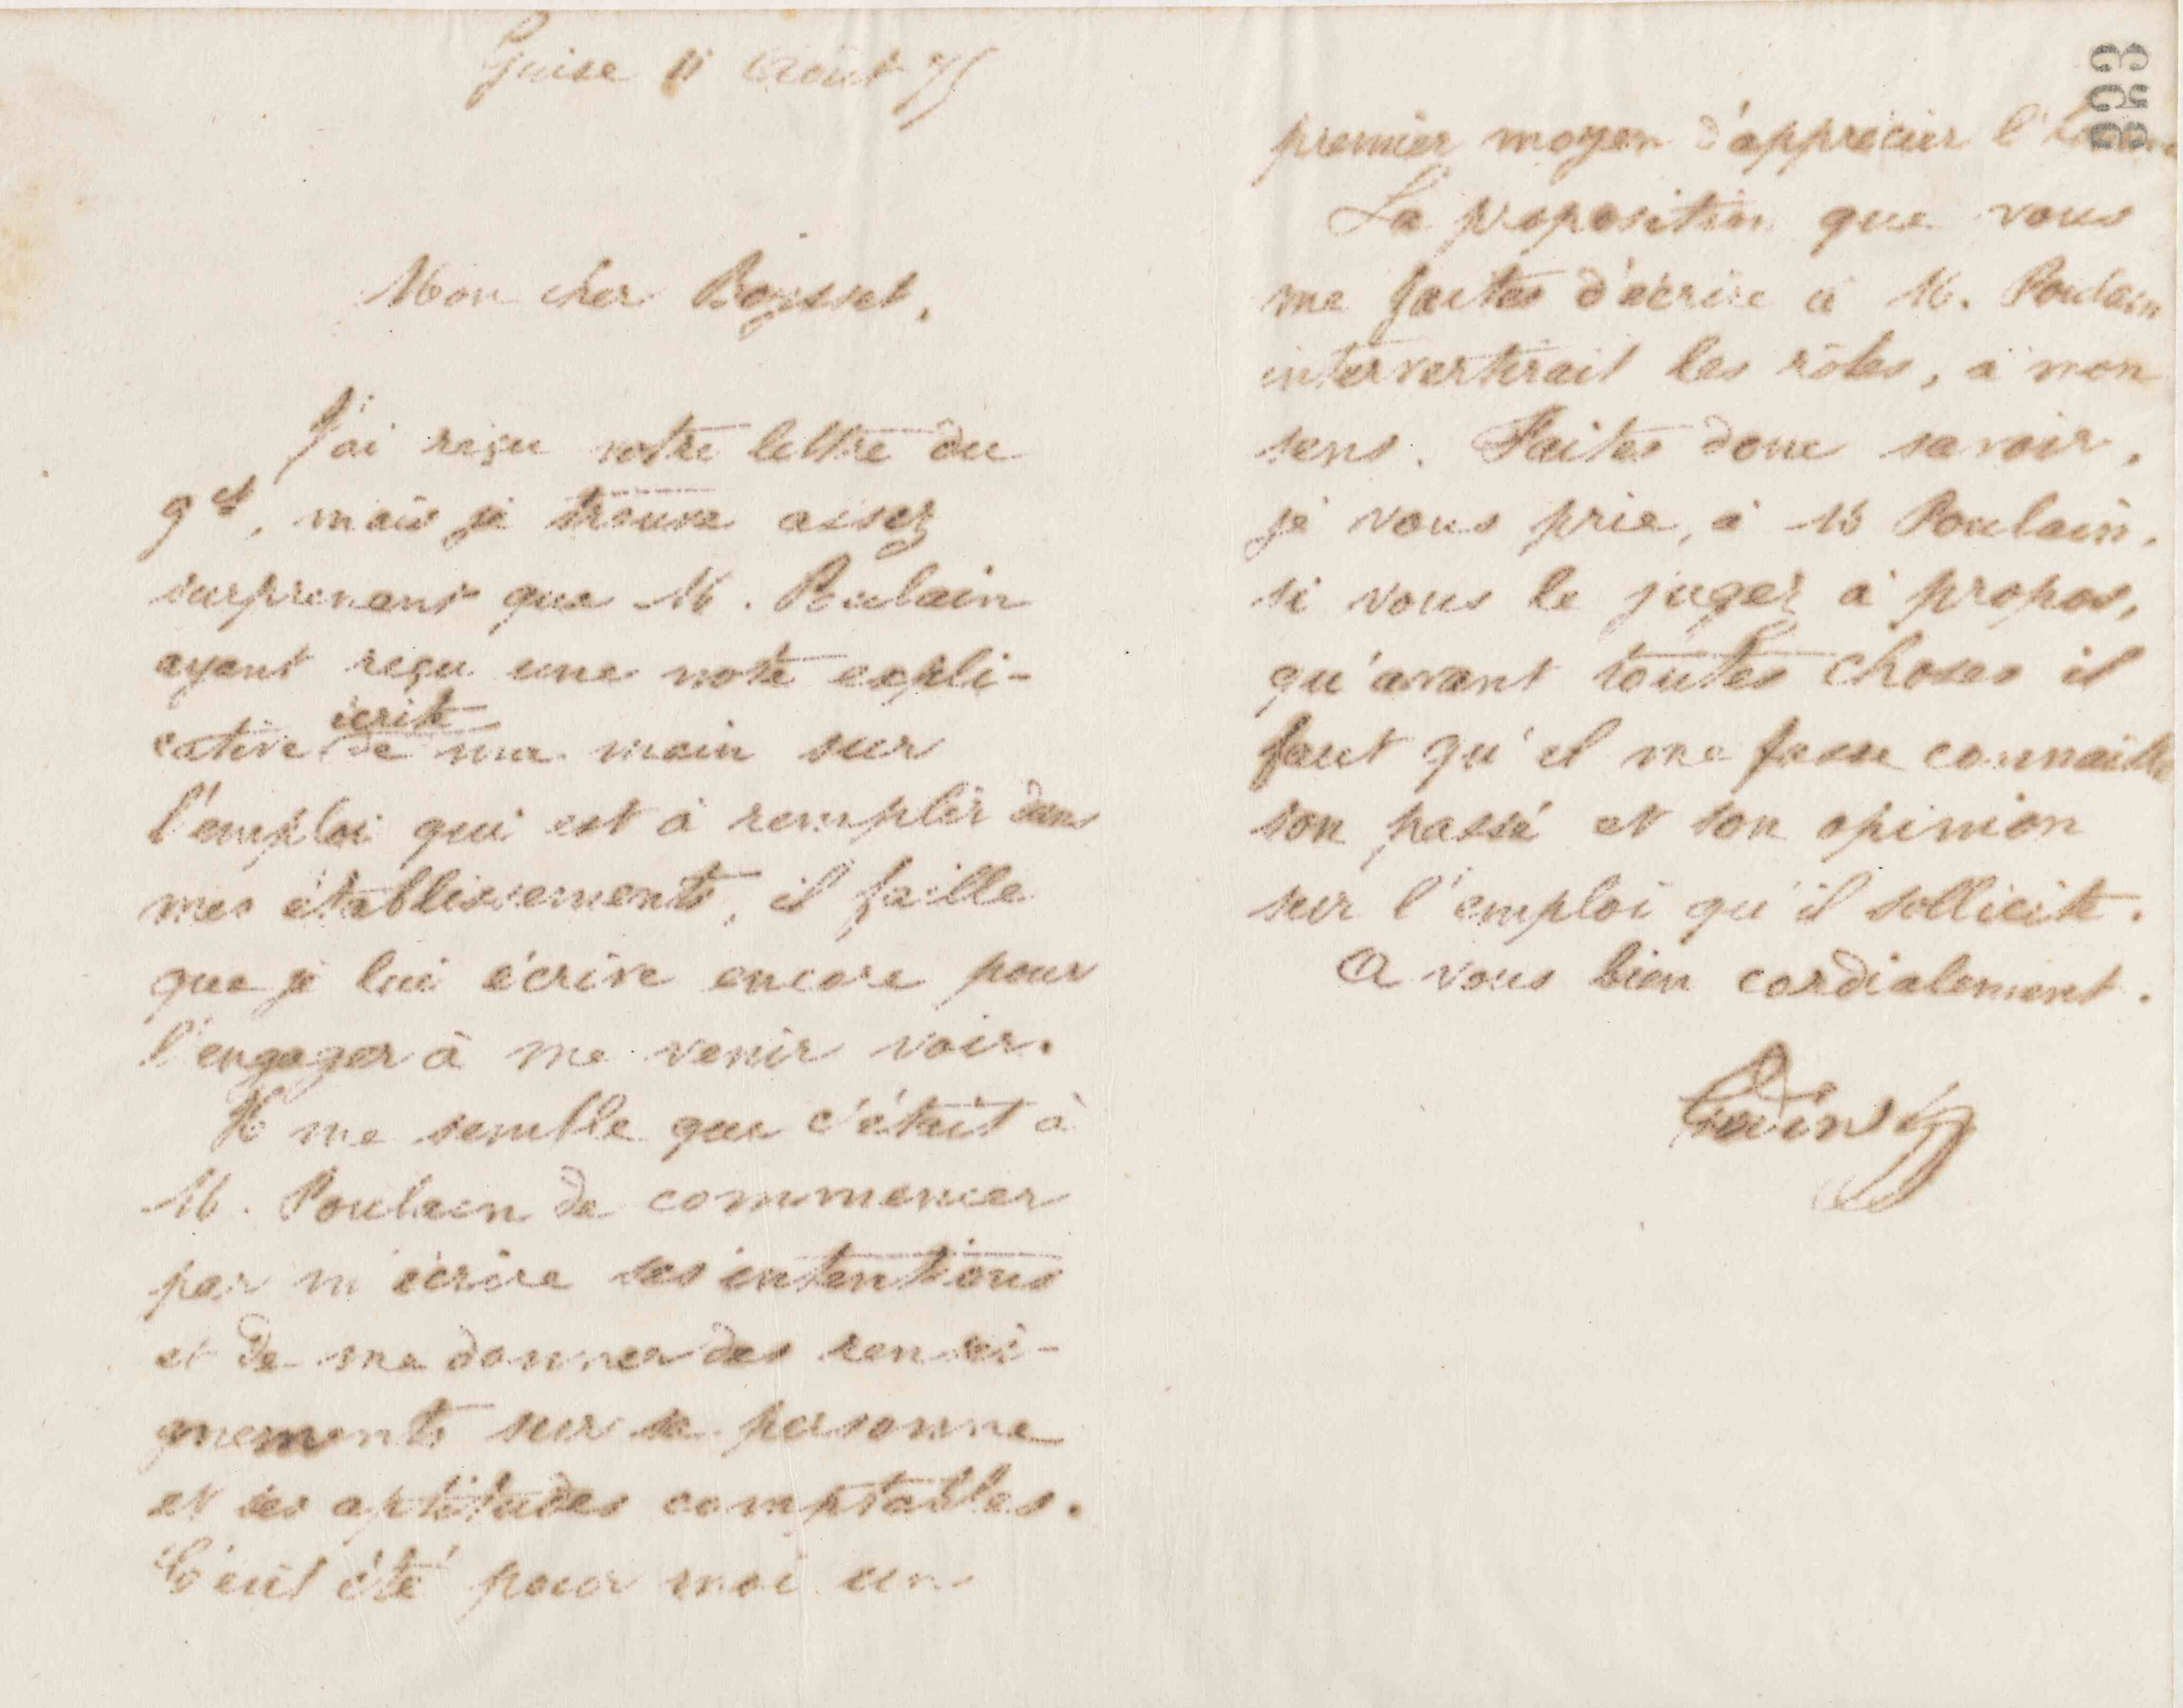 Guise 11 Août 75
Mon cher Boysset,
J'ai reçu votre lettre du
9 ct, mais je trouve assez
surprenant que M. Poulain
ayant reçu une note expli-
cative écrite de ma main sur
l'emploi qui est à remplir dans
mes établissements, il faille
que je lui écrive encore pour
l'engager à me venir voir.
Il me semble que c'était à
M. Poulain de commencer
par m'écrire ses intentions
et de me donner des rensei-
gnements sur sa personne
et ses aptitudes comptables.
C'eut été pour moi un
323
premier moyen d'apprécier l'
La proposition que vous
me faites d'écrire à M. Poulain
intervertirait les rôles, à mon
sens. Faites donc savoir,
je vous prie, à M Poulain,
si vous le jugez à propos,
qu'avant toutes choses il
faut qu'il me fasse connaître
son passé et son opinion
sur l'emploi qu'il sollicite.
A vous bien cordialement.
Godin